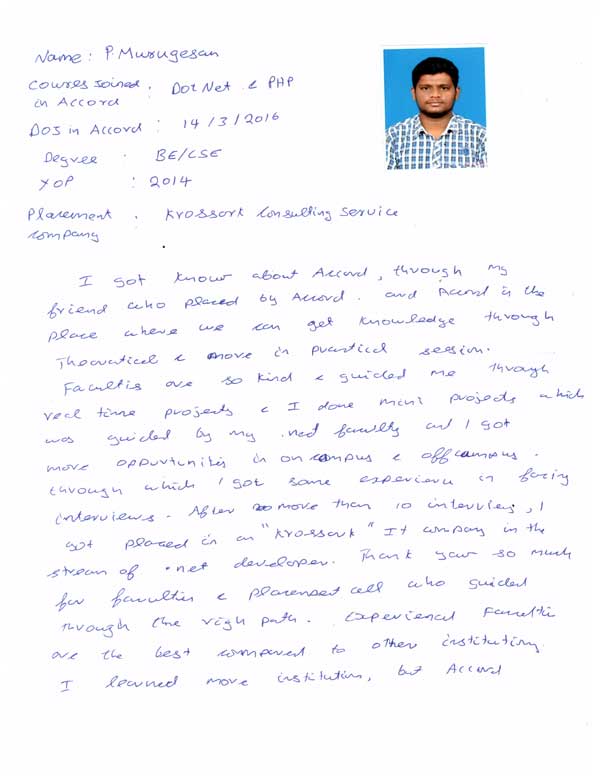 Name : P. Murugesan
Courses Joined : Dot Net & PHP
in Accord
DOJ in Accord : 14/3/2016
Degree : BE/CSE
YOP : 2014
Placement : Krossark Consulting Service
Company
I got know about Accord, through my
friend who placed by Accord. and Accord is the
place where we can get knowledge through
Theoratical & more in practical session.
Faculties are so kind & guided me through
real time projects & I done mini projects which
was guided by my .net faculty and I got
more oppurtunities in on campus & off campus.
through which I got some experience in facing
interviews. After more than 10 interviews, I
got placed in an "Krossark" IT company in the
stream of .net developer. Thank you so much
for faculties & placement cell who guided
through the righ path. Experienced Faculties
are the best compared to other institution
I learned more institution, but Accord